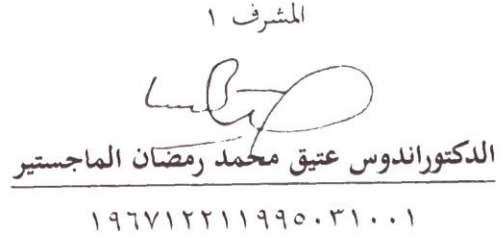 المشرف ١
الدكتوراندوس عتيق محمد رمضان الماجستير
١٩٦٧١٢٢١١٩٩٥٠٣١٠٠١